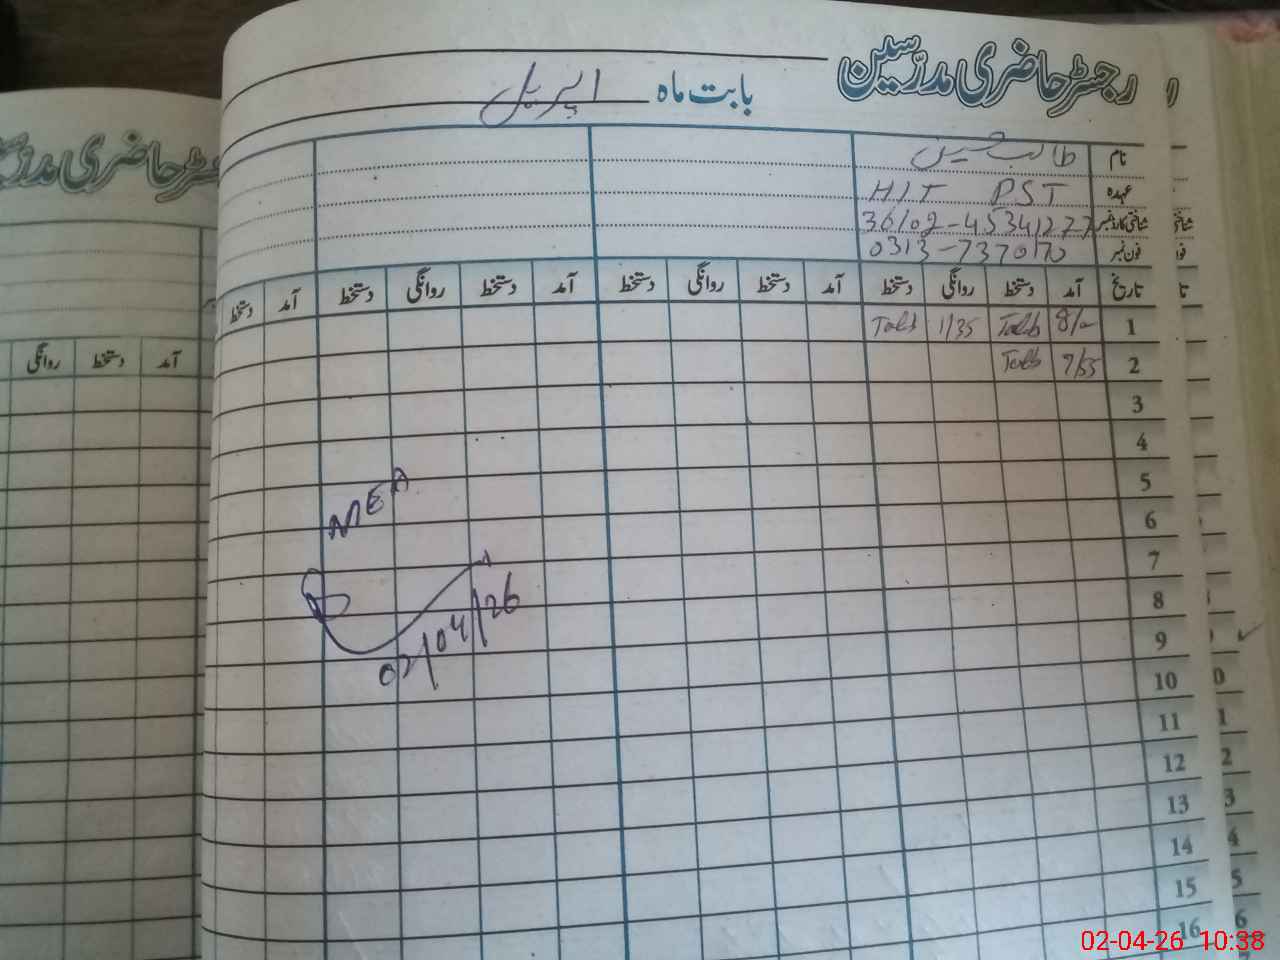 رجسٹر حاضری مدرّسین
بابت ماہ اپریل
نام طالب حسین
عہدہ HIT PST
شناختی کارڈ نمبر 36102-45341277
فون نمبر 0313-7370170
تاریخ آمد دستخط روانگی دستخط آمد دستخط روانگی دستخط آمد دستخط روانگی دستخط آمد دستخط
1 8/- Talib 1/35 Talib
2 7/55 Talib
3
4
5
6
7
8
9
10
11
12
13
14
15
16
MEA
02/04/26
آمد دستخط روانگی
02-04-26 10:38